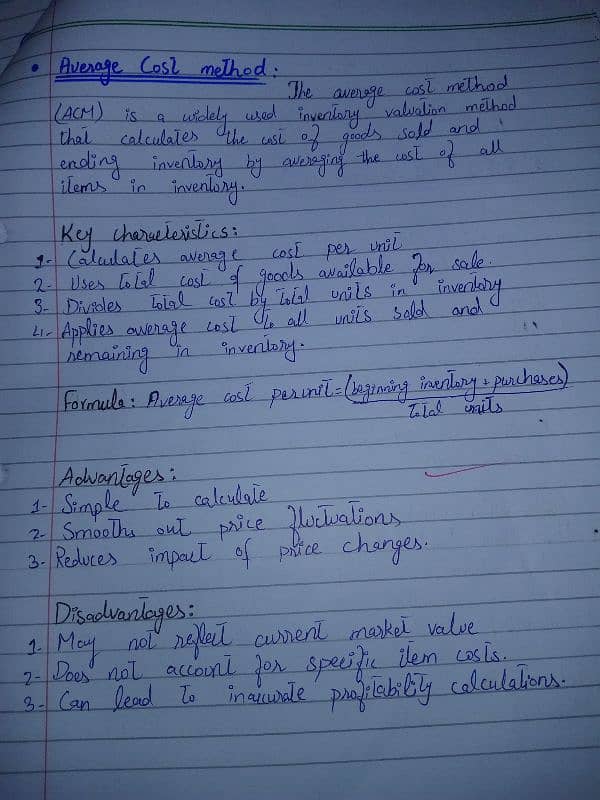 • Average Cost method:
The average cost method
(ACM) is a widely used inventory valuation method
that calculates the cost of goods sold and
ending inventory by averaging the cost of all
items in inventory.
Key characteristics:
1- Calculates average cost per unit
2- Uses total cost of goods available for sale.
3- Divides total cost by total units in inventory
4- Applies average cost to all units sold and
remaining in inventory.
Formula: Average cost per unit = (beginning inventory + purchases)
total units
Advantages:
1- Simple to calculate
2- Smooths out price fluctuations
3- Reduces impact of price changes.
Disadvantages:
1- May not reflect current market value
2- Does not account for specific item costs.
3- Can lead to inaccurate profitability calculations.